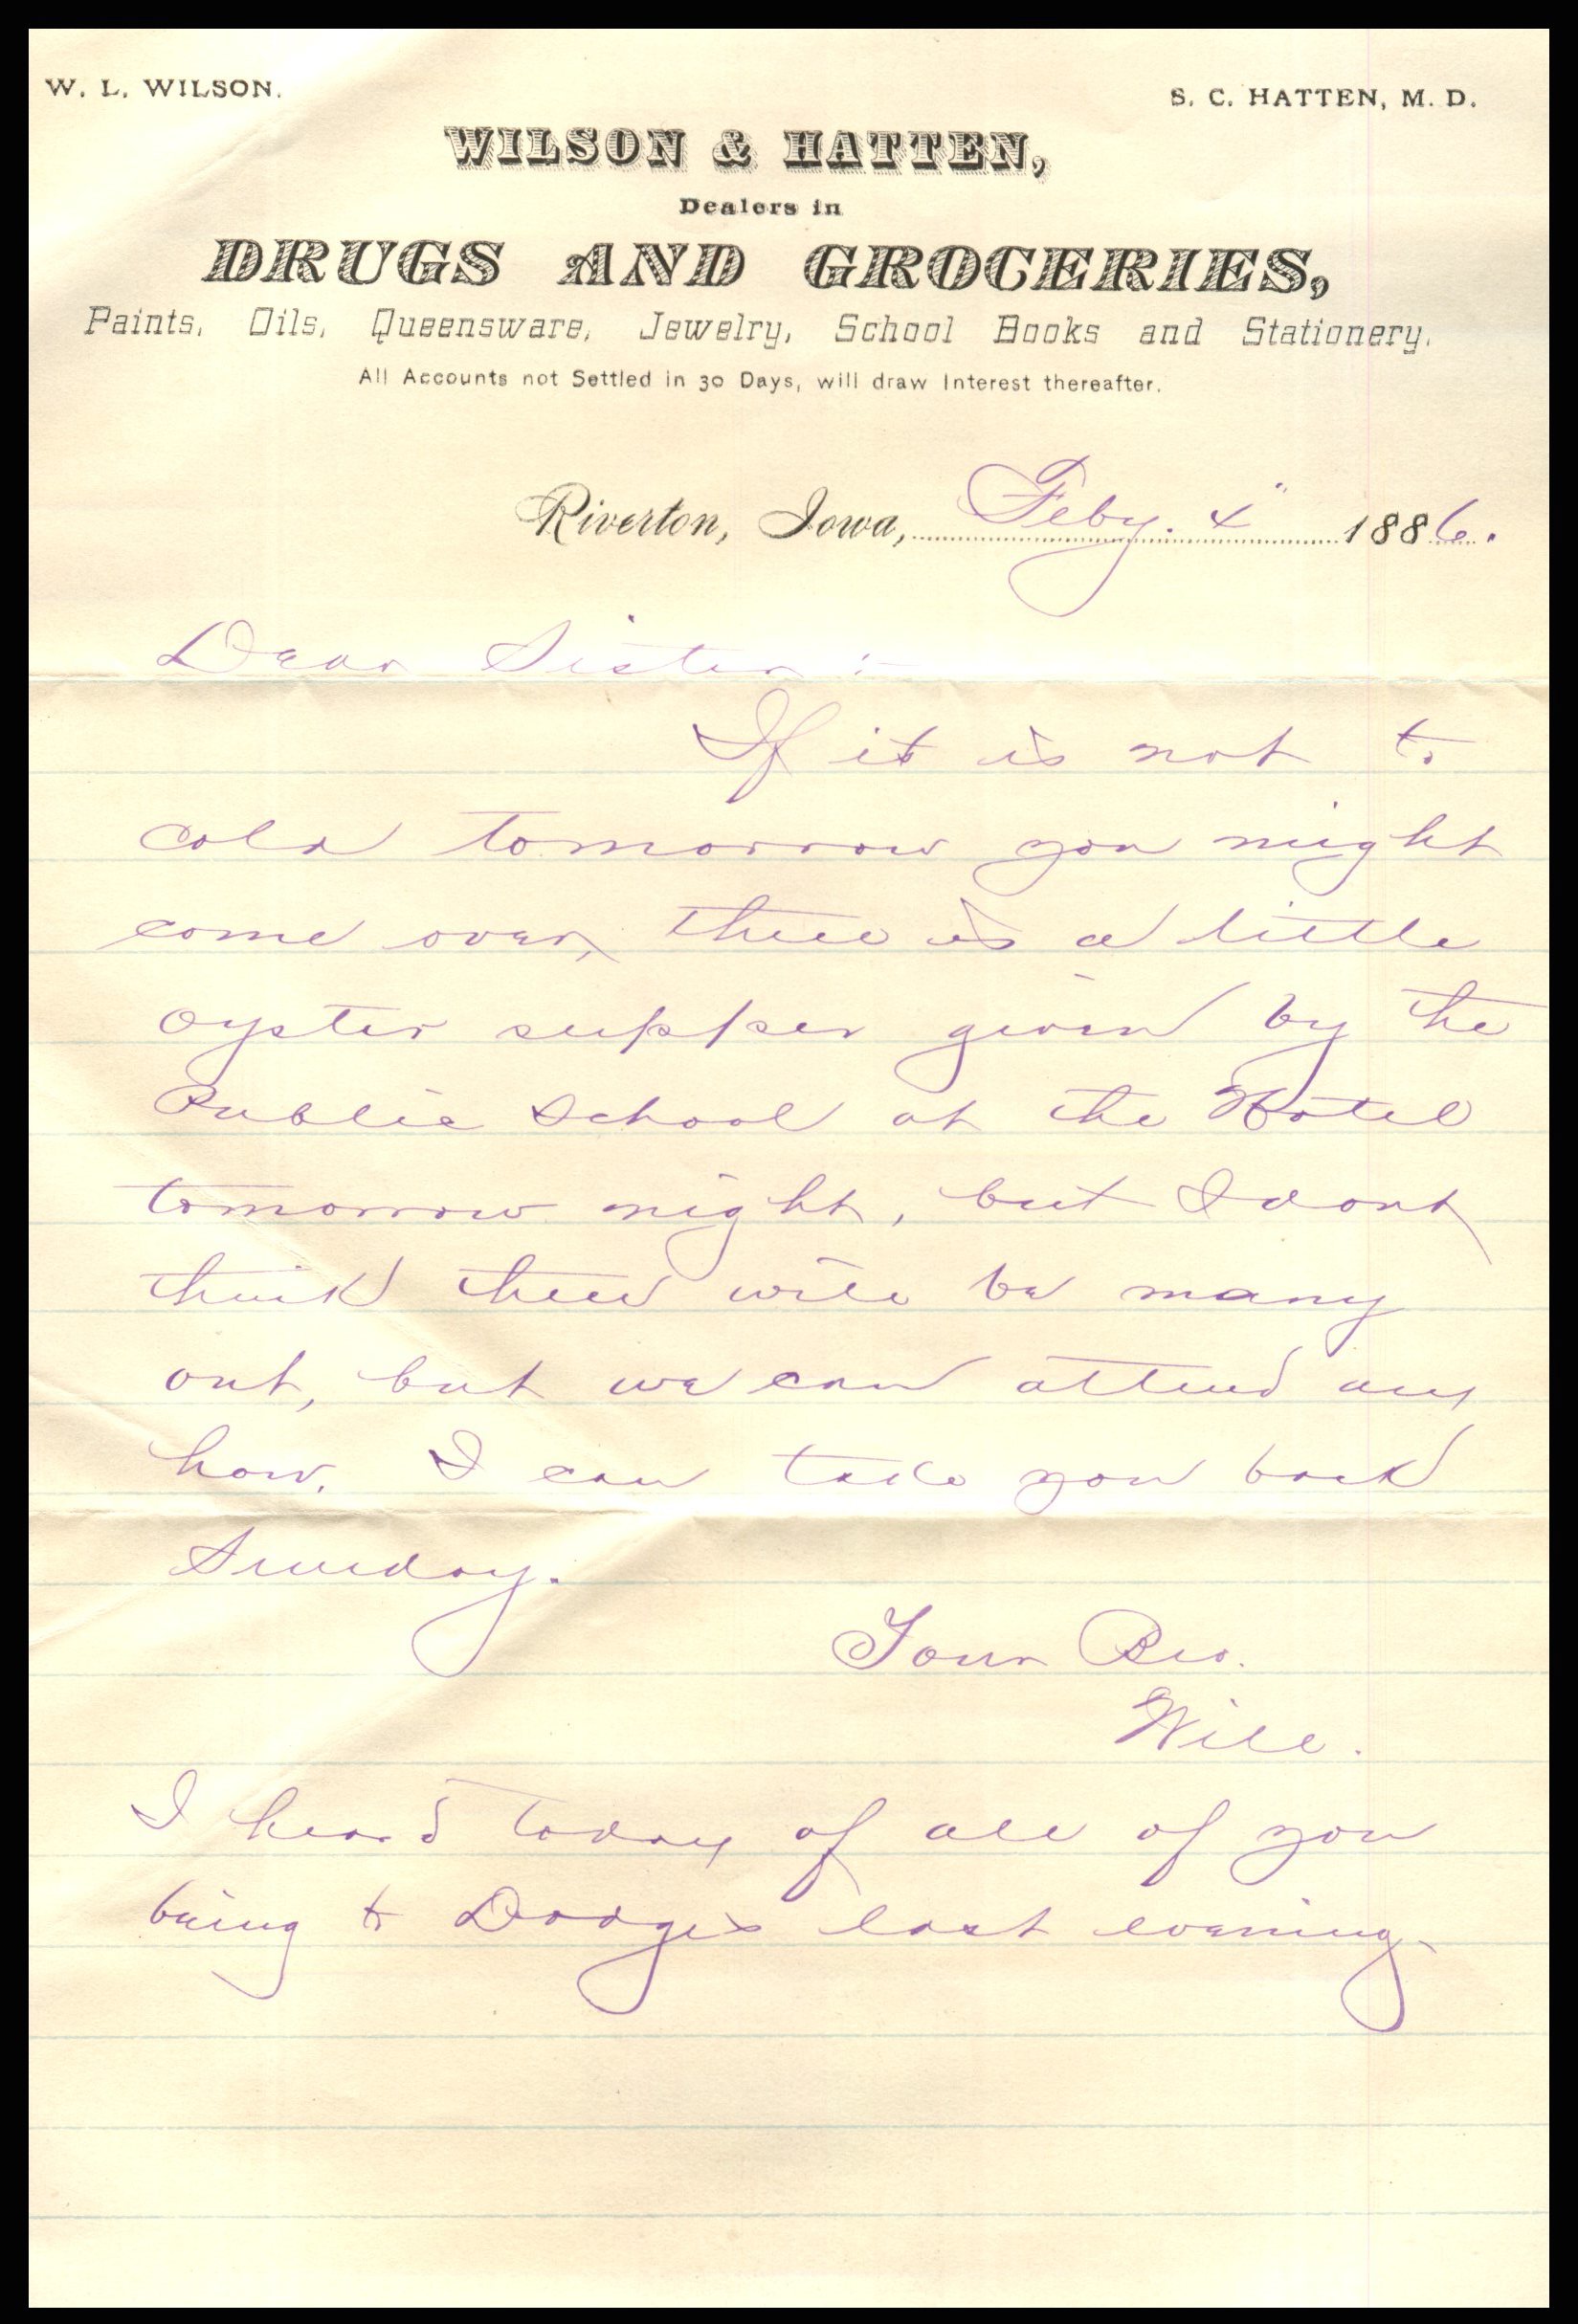 W. L. WILSON.
S. C. HATTEN, M. D.
WILSON & HATTEN,
Dealers in
DRUGS AND GROCERIES,
Paints, Oils, Queensware, Jewelry, School Books and Stationery.
All Accounts not Settled in 30 Days, will draw Interest thereafter.
Riverton, Iowa, Feby. 4" 1886.
Dear Sister :-
If it is not to
cold tomorrow you might
come over, there is a little
oyster supper given by the
Public School at the Hotel
tomorrow night, but I dont
think there will be many
out, but we can attend any
how. I can take you back
Sunday.
Your Bro.
Will.
I heard today of all of you
being to Dodges last evening.